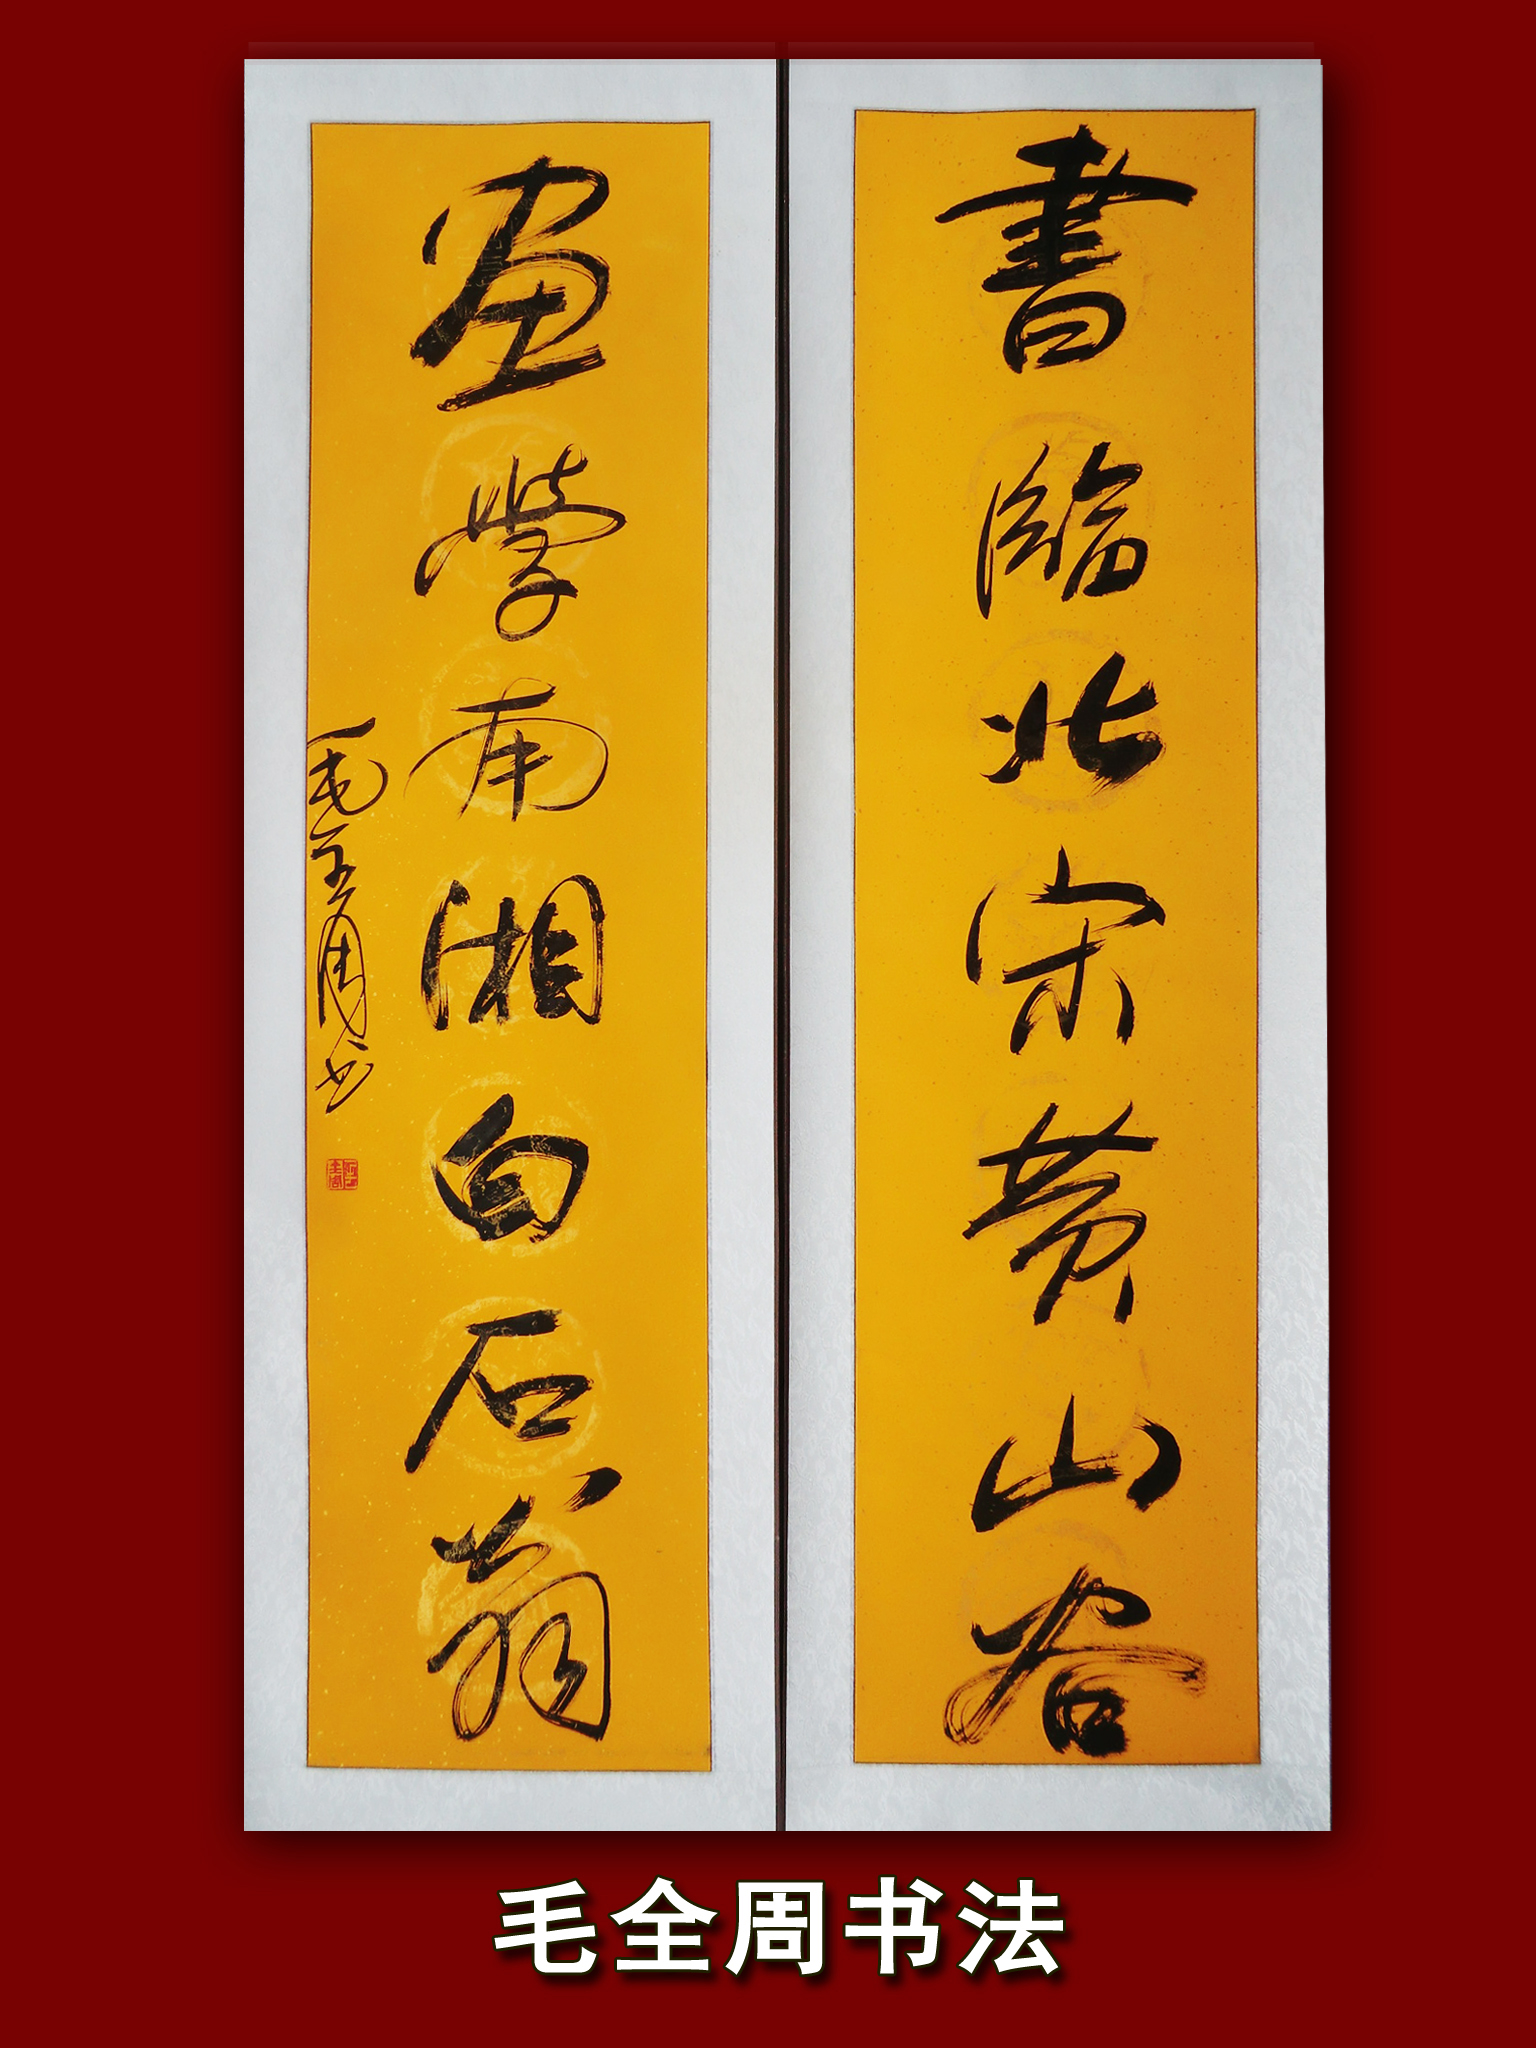 書臨北宋黄山谷
画學南湘白石翁
毛全周书
毛全周书法